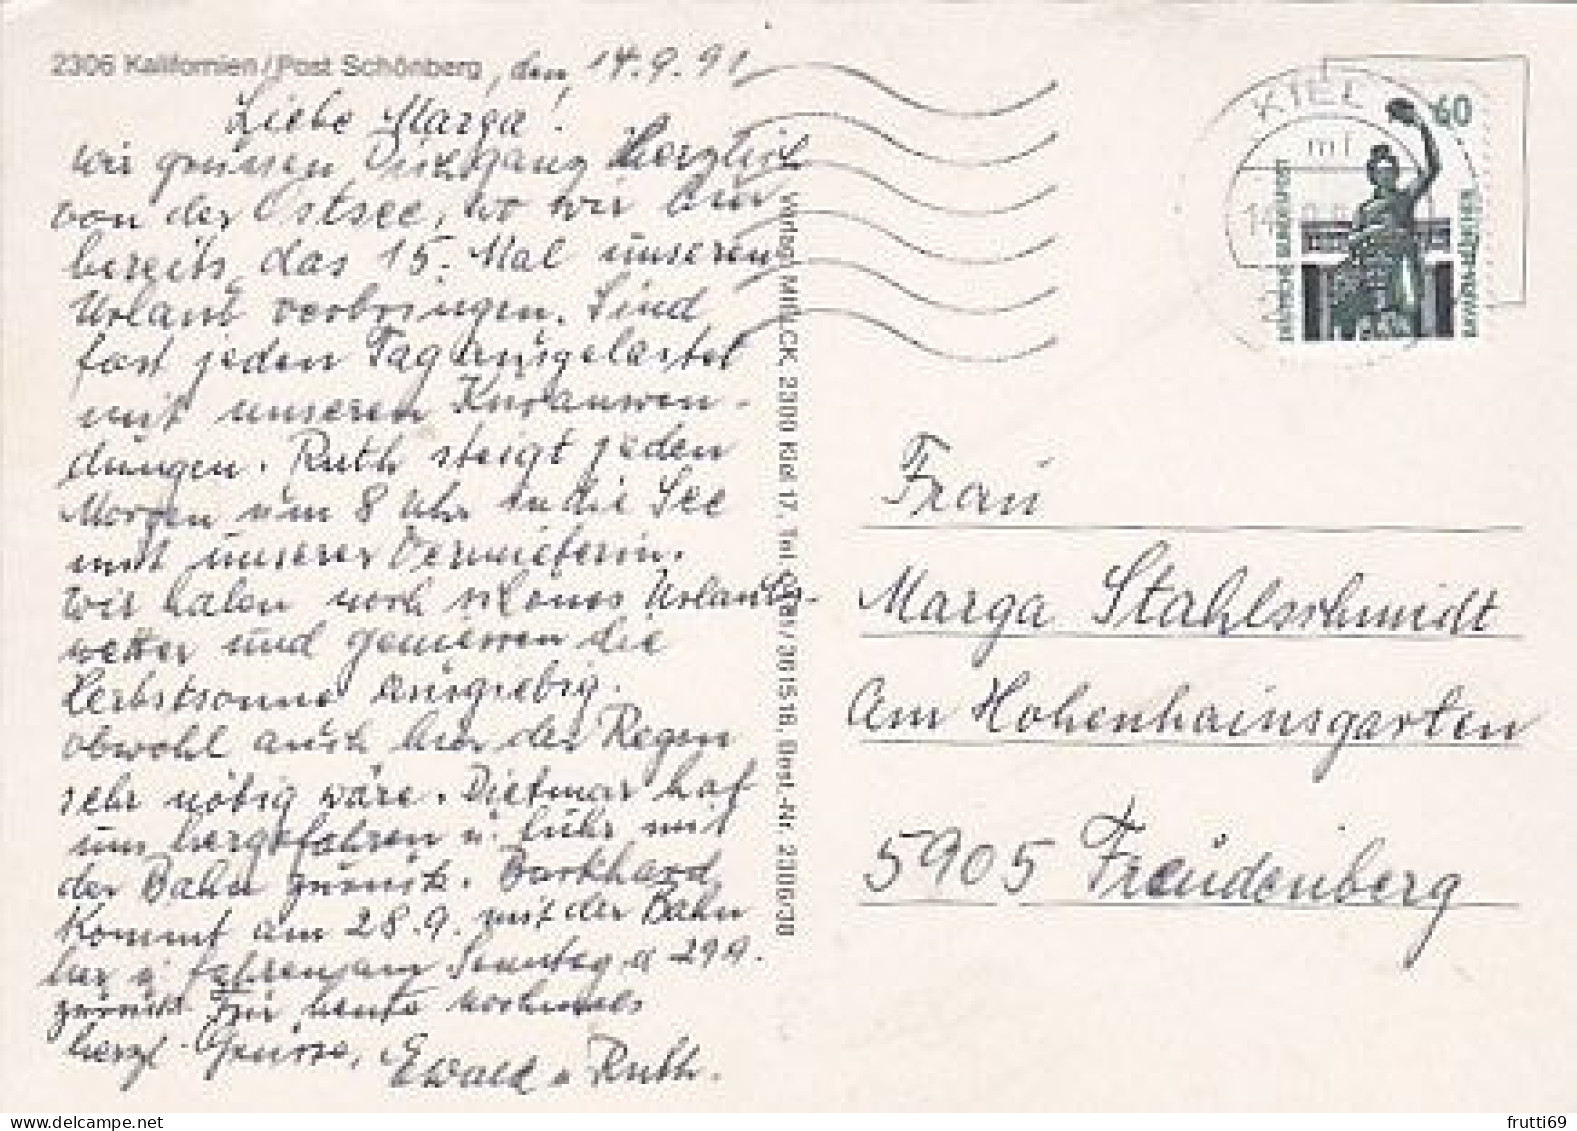 2306 Kalifornien/Post Schönberg, den 14.9.91
Liebe Marga!
wir grüssen Dich ganz Herzlich
von der Ostsee, wo wir nun
bereits das 15. Mal unseren
Urlaub verbringen. Sind
fast jeden Tag ausgelastet
mit unseren Kuranwen-
dungen. Ruth steigt jeden
Morgen um 8 Uhr in die See
mit unserer Vermieterin.
Wir haben noch schönes Urlaubs-
wetter und geniessen die
Herbstsonne ausgiebig.
obwohl auch hier der Regen
sehr nötig wäre. Dietmar hat
uns hergefahren u. fuhr mit
der Bahn zurück. Burkhard
kommt am 28.9. mit der Bahn
her u. fahren am Sonntag d 29.9.
zurück Für heute nochmals
herzl. Grüsse,
Ewald u Ruth.
Verlag MILLCK, 2300 Kiel 17, Tel. 0431/361518, Best.-Nr. 2306/30
KIEL
mf
60
DEUTSCHE BUNDESPOST
Frau
Marga Stahlschmidt
Am Hohenhainsgarten
5905 Freudenberg
frutti69